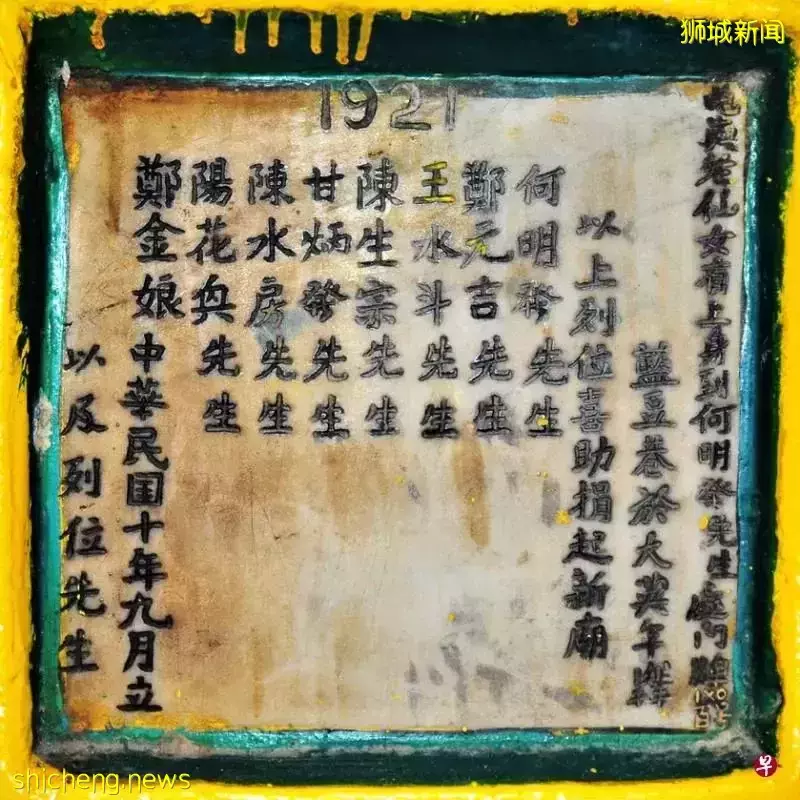 狮城新闻
1921
仙女有上身到何明發先生處門牌
藍豆巷於大
以上列位喜助捐起新廟
何明發先生
鄭元吉先生
王水斗先生
陳生宗先生
甘炳發先生
陳水房先生
陽花典先生
鄭金娘
中華民国十年九月立
以及列位先生
shicheng.news
早